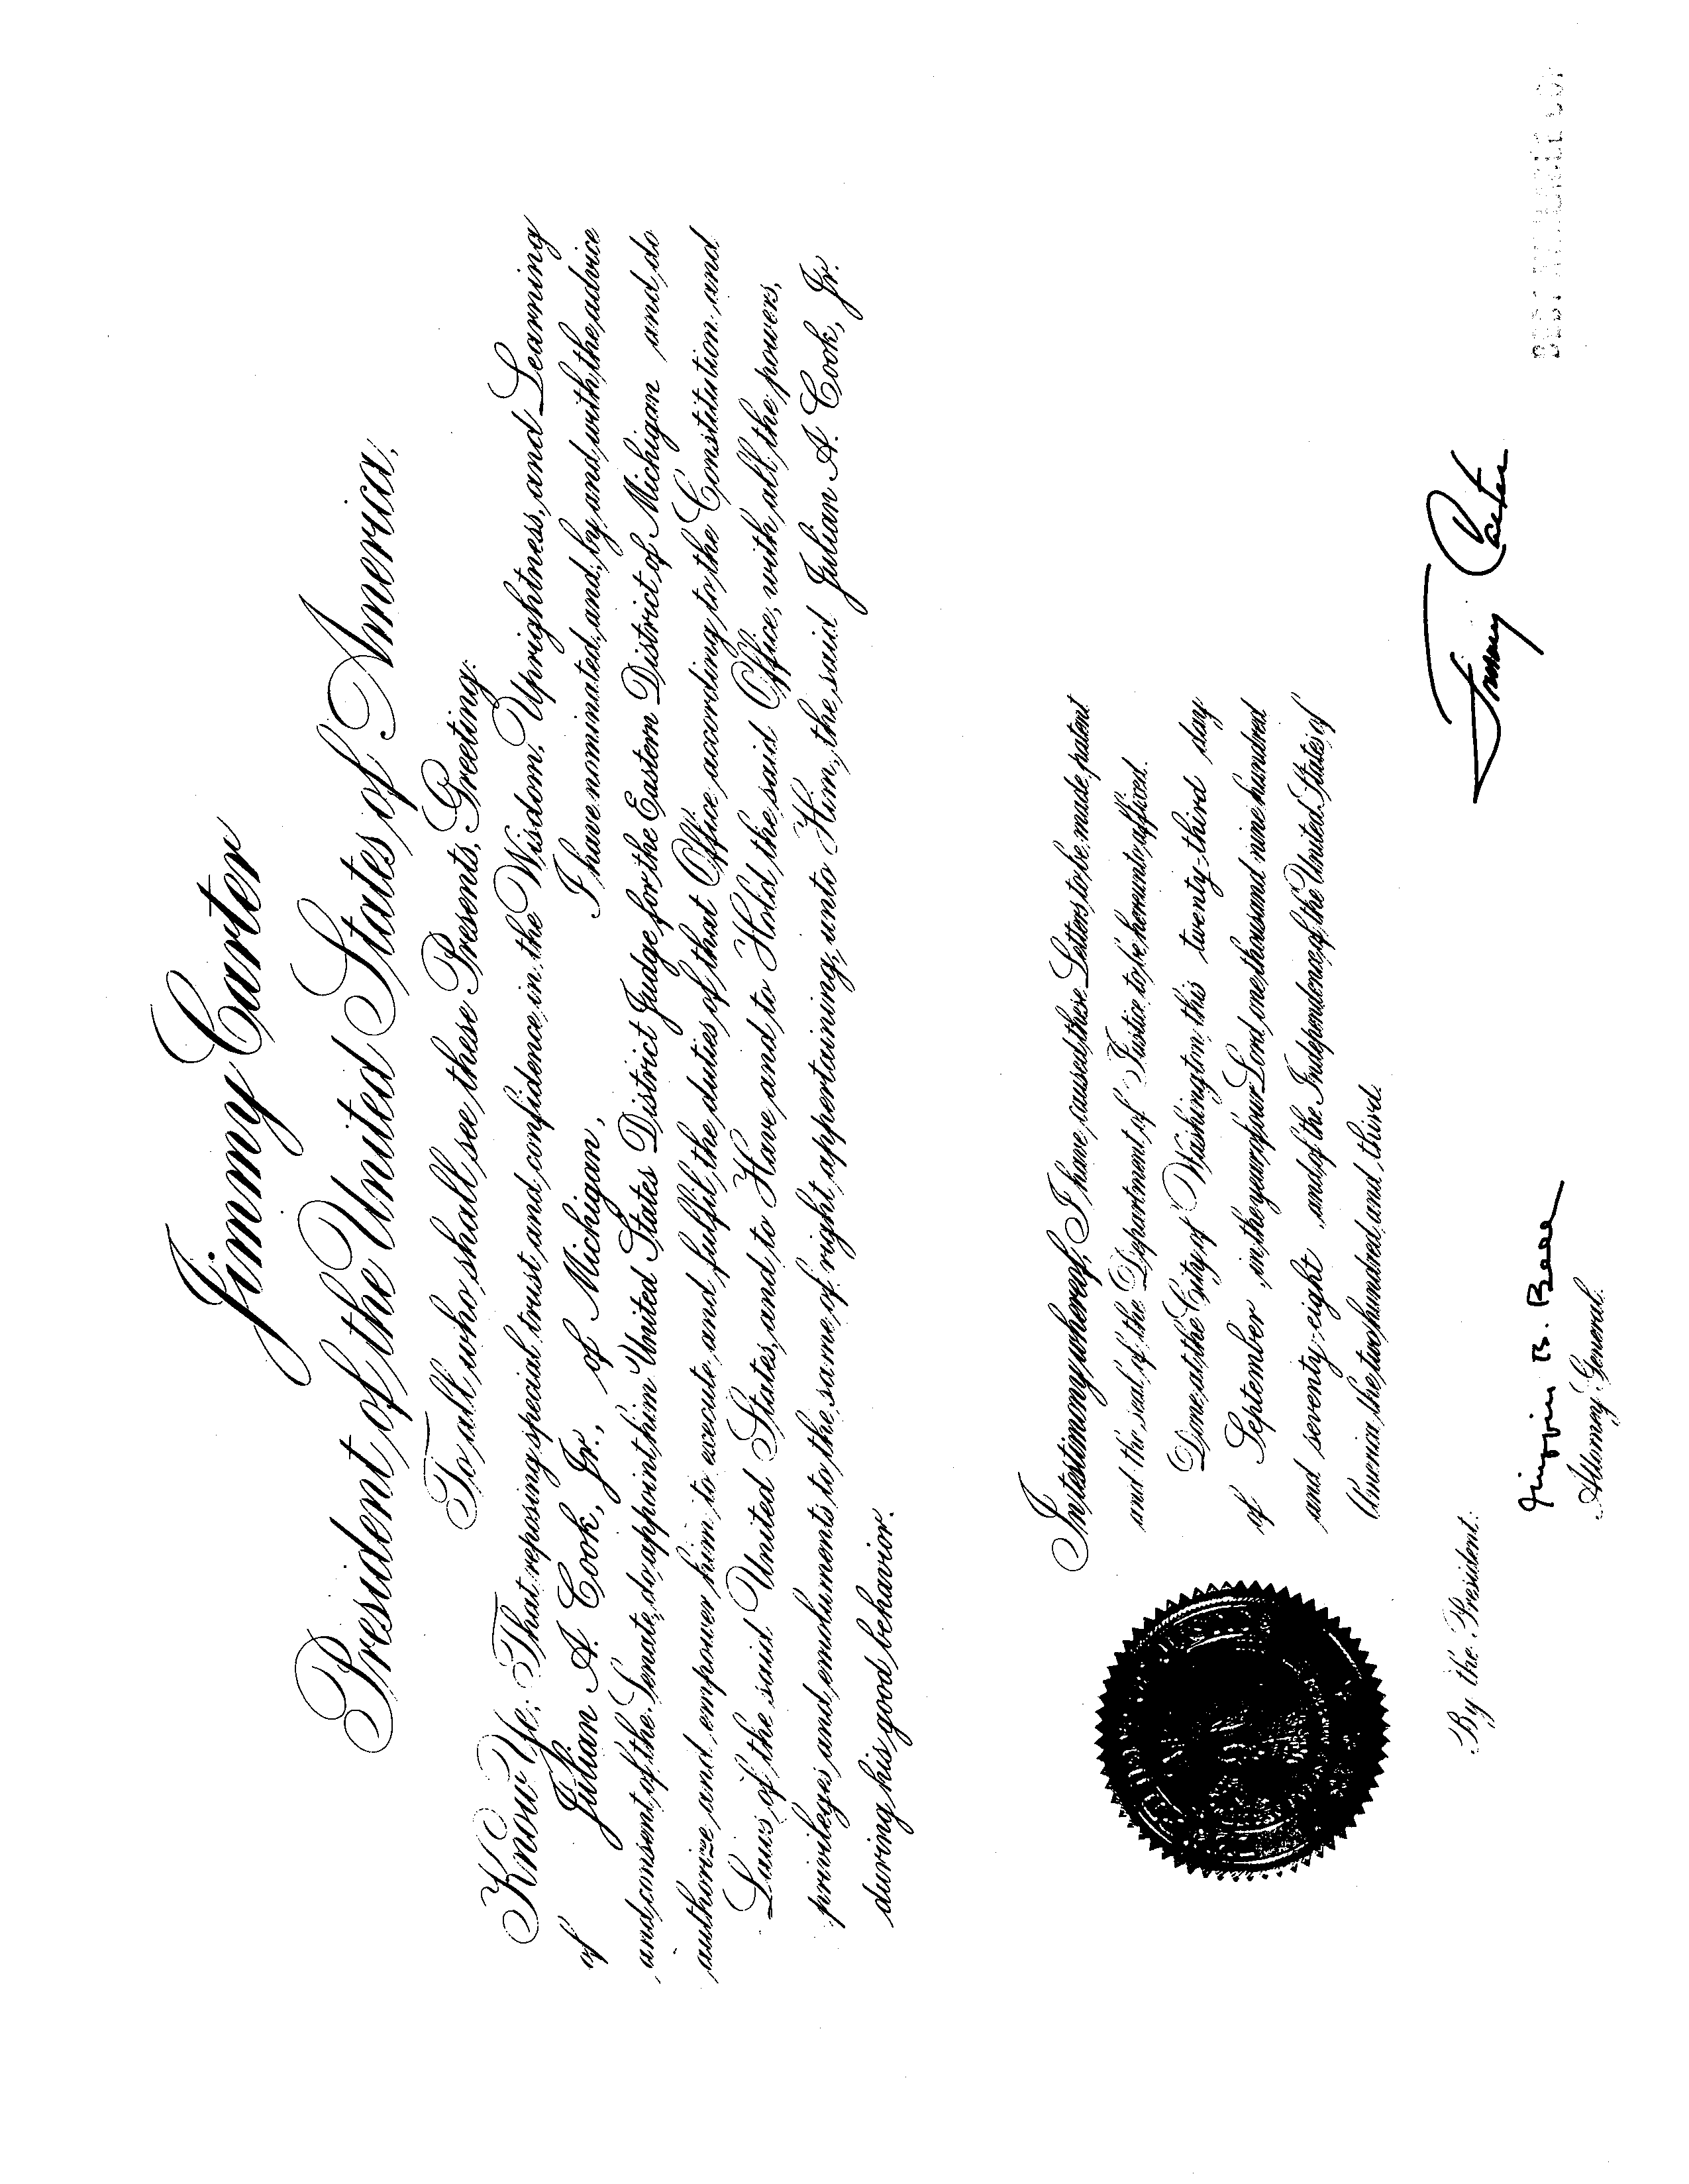 Jimmy Carter
President of the United States of America,
To all who shall see these Presents, Greeting:
Know Ye; That reposing special trust and confidence in the Wisdom, Uprightness, and Learning
of Julian A. Cook, Jr., of Michigan, I have nominated, and, by and with the advice
and consent of the Senate, do appoint him United States District Judge for the Eastern District of Michigan and do
authorize and empower him to execute and fulfil the duties of that Office according to the Constitution and
Laws of the said United States, and to Have and to Hold the said Office, with all the powers,
privileges and emoluments to the same of right appertaining, unto Him, the said Julian A. Cook, Jr.
during his good behavior.
In testimony whereof, I have caused these Letters to be made patent
and the seal of the Department of Justice to be hereunto affixed.
Done at the City of Washington, this twenty-third day
of September, in the year of our Lord one thousand nine hundred
and seventy-eight and of the Independence of the United States of
America the two hundred and third.
Jimmy Carter
By the President:
Griffin B. Bell
Attorney General.